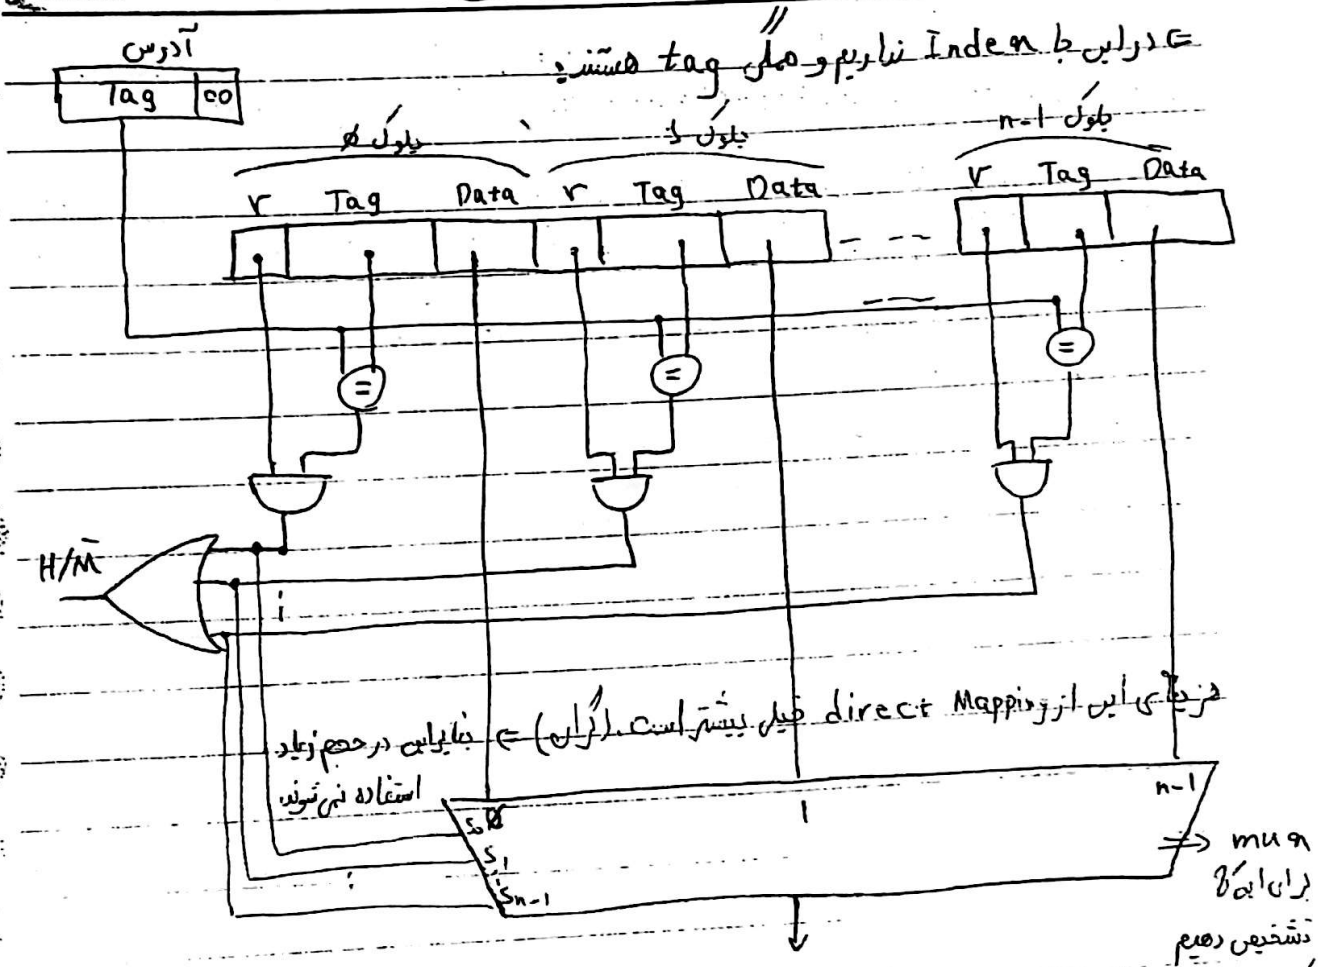 ⇐ در این جا Index نداریم و همگی tag هستند:
آدرس
Tag 00
بلوک 0 بلوک 1 بلوک n-1
v Tag Data v Tag Data --- v Tag Data
= = =
H/M̄
هزینه‌ی این از direct Mapping خیلی بیشتر است. (گران) ⇐ بنابراین در حجم زیاد
استفاده نمی‌شوند
0 1 n-1
S0
S1
Sn-1
⇒ mux
برای اینکه
تشخیص دهیم